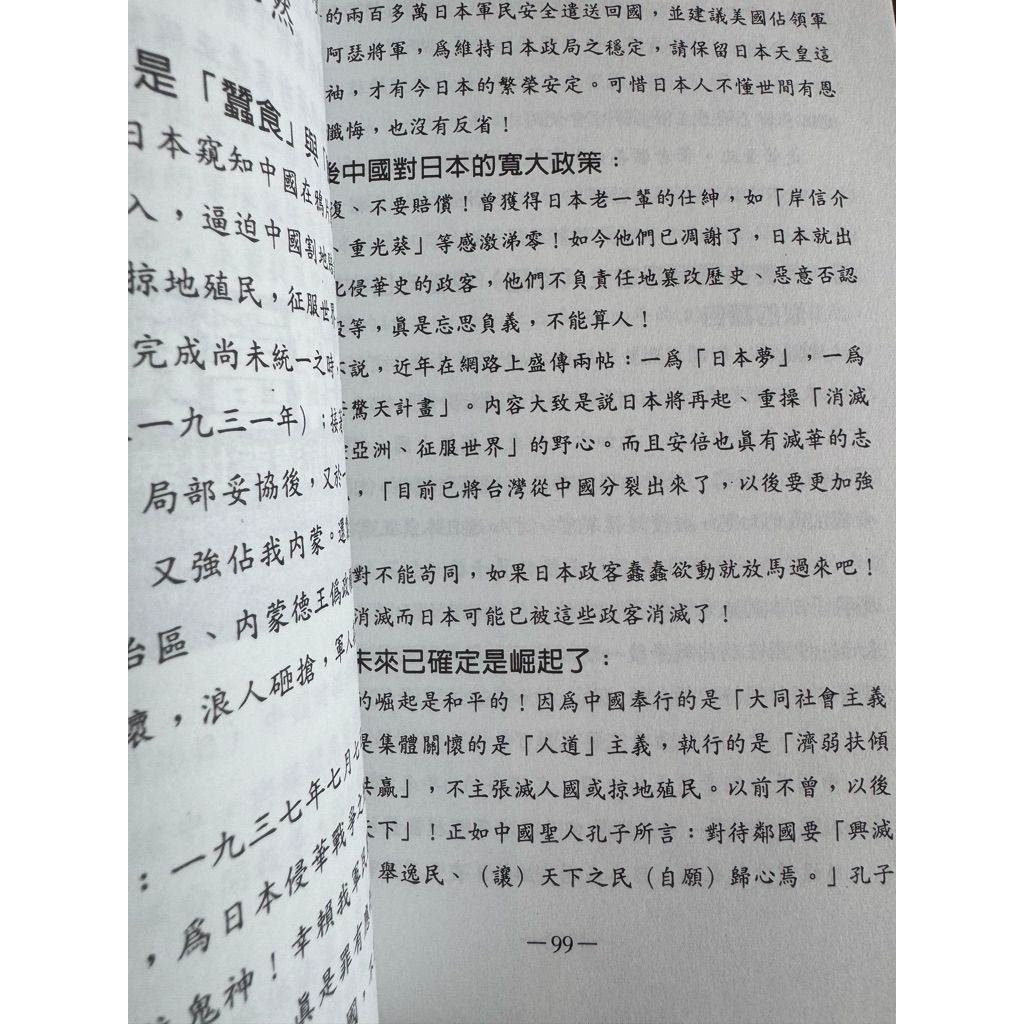 然
是「蠶食」與「
日本窺知中國在鴉片
入，逼迫中國割地
掠地殖民，征服世界
完成尚未統一之時
一九三一年）；接著
局部妥協後，又於
又強佔我內蒙。還
治區、內蒙德王偽政
壞，浪人砸搶，軍人
：一九三七年七月七
，爲日本侵華戰爭之
鬼神！幸賴我軍民
眞是罪有應
國，
的兩百多萬日本軍民安全遣送回國，並建議美國佔領軍
阿瑟將軍，爲維持日本政局之穩定，請保留日本天皇這
袖，才有今日本的繁榮安定。可惜日本人不懂世間有恩
懺悔，也沒有反省！
後中國對日本的寬大政策：
復、不要賠償！曾獲得日本老一輩的仕紳，如「岸信介
、重光葵」等感激涕零！如今他們已凋謝了，日本就出
化侵華史的政客，他們不負責任地篡改歷史、惡意否認
殺等，眞是忘思負義，不能算人！
不說，近年在網路上盛傳兩帖：一爲「日本夢」，一爲
驚天計畫」。內容大致是說日本將再起、重操「消滅
亞洲、征服世界」的野心。而且安倍也眞有滅華的志
，「目前已將台灣從中國分裂出來了，以後要更加強
對不能苟同，如果日本政客蠢蠢欲動就放馬過來吧！
消滅而日本可能已被這些政客消滅了！
未來已確定是崛起了：
的崛起是和平的！因爲中國奉行的是「大同社會主義
是集體關懷的是「人道」主義，執行的是「濟弱扶傾
共贏」，不主張滅人國或掠地殖民。以前不曾，以後
天下」！正如中國聖人孔子所言：對待鄰國要「興滅
舉逸民、（讓）天下之民（自願）歸心焉。」孔子
—99—